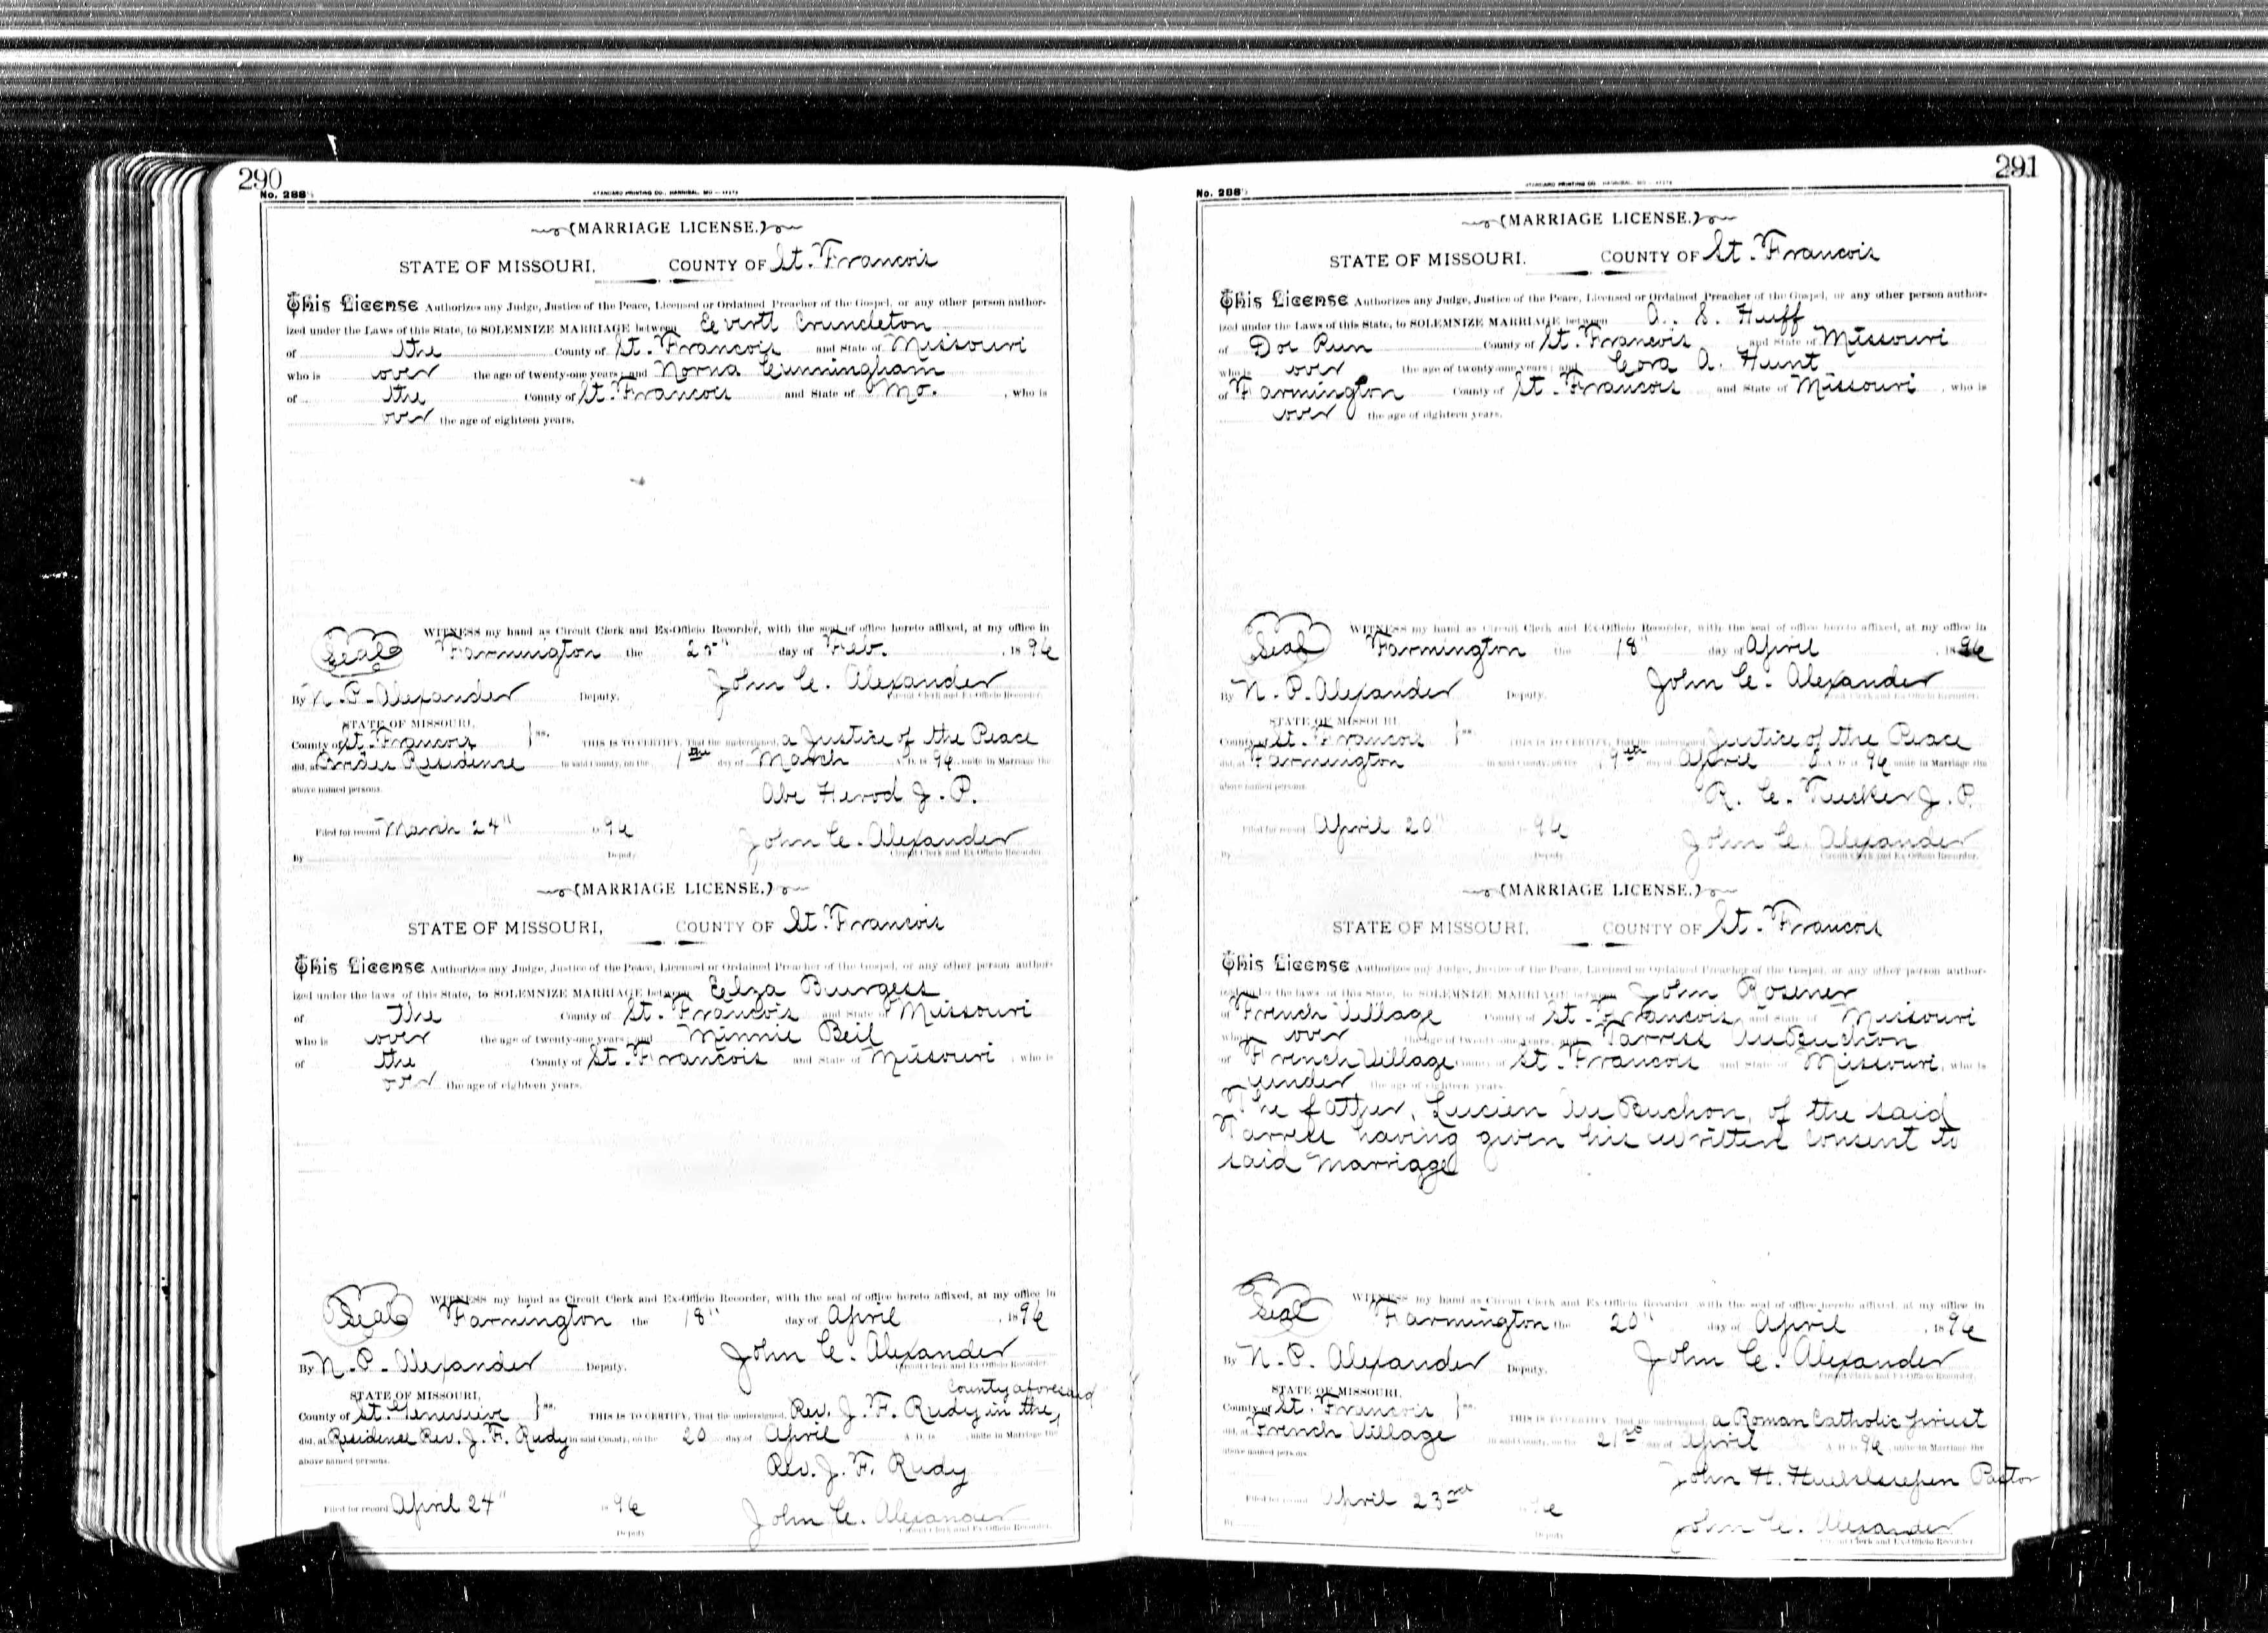 290
No. 288
STANDARD PRINTING CO., HANNIBAL, MO
(MARRIAGE LICENSE.)
STATE OF MISSOURI, COUNTY OF St. Francois
This License Authorizes any Judge, Justice of the Peace, Licensed or Ordained Preacher of the Gospel, or any other person author-
ized under the Laws of this State, to SOLEMNIZE MARRIAGE between Evertt Cruncleton
of the County of St. Francois and State of Missouri
who is over the age of twenty-one years; and Norna Cunningham
of the County of St. Francois and State of Mo. , who is
over the age of eighteen years.
WITNESS my hand as Circuit Clerk and Ex-Officio Recorder, with the seal of office hereto affixed, at my office in
Seal Farmington the 25" day of Feb. , 1896
By N. P. Alexander Deputy. John C. Alexander
Circuit Clerk and Ex-Officio Recorder.
STATE OF MISSOURI,
County of St. Francois ss. THIS IS TO CERTIFY, That the undersigned, a Justice of the Peace
did, at Brides Residence in said County, on the 1st day of March A. D. 1896 unite in Marriage the
above named persons.
Abe Herod J. P.
Filed for record March 24" 1896 John C. Alexander
By Deputy Circuit Clerk and Ex-Officio Recorder.
(MARRIAGE LICENSE.)
STATE OF MISSOURI, COUNTY OF St. Francois
This License Authorizes any Judge, Justice of the Peace, Licensed or Ordained Preacher of the Gospel, or any other person author-
ized under the laws of this State, to SOLEMNIZE MARRIAGE between Elza Burgess
of the County of St. Francois and State of Missouri
who is over the age of twenty-one years; and Minnie Beil
of the County of St. Francois and State of Missouri , who is
over the age of eighteen years.
WITNESS my hand as Circuit Clerk and Ex-Officio Recorder, with the seal of office hereto affixed, at my office in
Seal Farmington the 18" day of April , 1896
By N. P. Alexander Deputy. John C. Alexander
Circuit Clerk and Ex-Officio Recorder.
STATE OF MISSOURI, County aforesaid
County of St. Genevieve ss. THIS IS TO CERTIFY, That the undersigned, Rev. J. F. Rudy in the
did, at Residence Rev. J. F. Rudy in said County, on the 20 day of April A. D. 18 , unite in Marriage the
above named persons.
Rev. J. F. Rudy
Filed for record April 24" 1896 John C. Alexander
Deputy Circuit Clerk and Ex-Officio Recorder.
291
No. 288
STANDARD PRINTING CO., HANNIBAL, MO
(MARRIAGE LICENSE.)
STATE OF MISSOURI. COUNTY OF St. Francois
This License Authorizes any Judge, Justice of the Peace, Licensed or Ordained Preacher of the Gospel, or any other person author-
ized under the Laws of this State, to SOLEMNIZE MARRIAGE between A. S. Huff
of Doe Run County of St. Francois and State of Missouri
who is over the age of twenty-one years; and Cora A. Hunt
of Farmington County of St. Francois and State of Missouri , who is
over the age of eighteen years.
WITNESS my hand as Circuit Clerk and Ex-Officio Recorder, with the seal of office hereto affixed, at my office in
Seal Farmington the 18" day of April , 1896
By N. P. Alexander Deputy. John C. Alexander
Circuit Clerk and Ex-Officio Recorder.
STATE OF MISSOURI,
County of St. Francois ss. THIS IS TO CERTIFY, That the undersigned Justice of the Peace
did, at Farmington in said County, on the 19th day of April A. D. 1896 unite in Marriage the
above named persons.
R. C. Tucker J. P.
Filed for record April 20" 1896 John C. Alexander
By Deputy Circuit Clerk and Ex-Officio Recorder.
(MARRIAGE LICENSE.)
STATE OF MISSOURI, COUNTY OF St. Francois
This License Authorizes any Judge, Justice of the Peace, Licensed or Ordained Preacher of the Gospel, or any other person author-
ized under the laws of this State, to SOLEMNIZE MARRIAGE between John Rosener
of French Village County of St. Francois and State of Missouri
who is over the age of twenty-one years; and Tarress AuBuchon
of French Village County of St. Francois and State of Missouri, who is
under the age of eighteen years.
The father, Lucien AuBuchon, of the said
Tarress having given his written consent to
said marriage
WITNESS my hand as Circuit Clerk and Ex-Officio Recorder with the seal of office hereto affixed, at my office in
Seal Farmington the 20" day of April , 1896
By N. P. Alexander Deputy. John C. Alexander
Circuit Clerk and Ex-Officio Recorder.
STATE OF MISSOURI,
County of St. Francois ss. THIS IS TO CERTIFY, That the undersigned, a Roman Catholic priest
did, at French Village in said County, on the 21st day of April A. D. 1896, unite in Marriage the
above named persons.
John H. Pastor
Filed for record April 23rd 1896
By Deputy John C. Alexander
Circuit Clerk and Ex-Officio Recorder